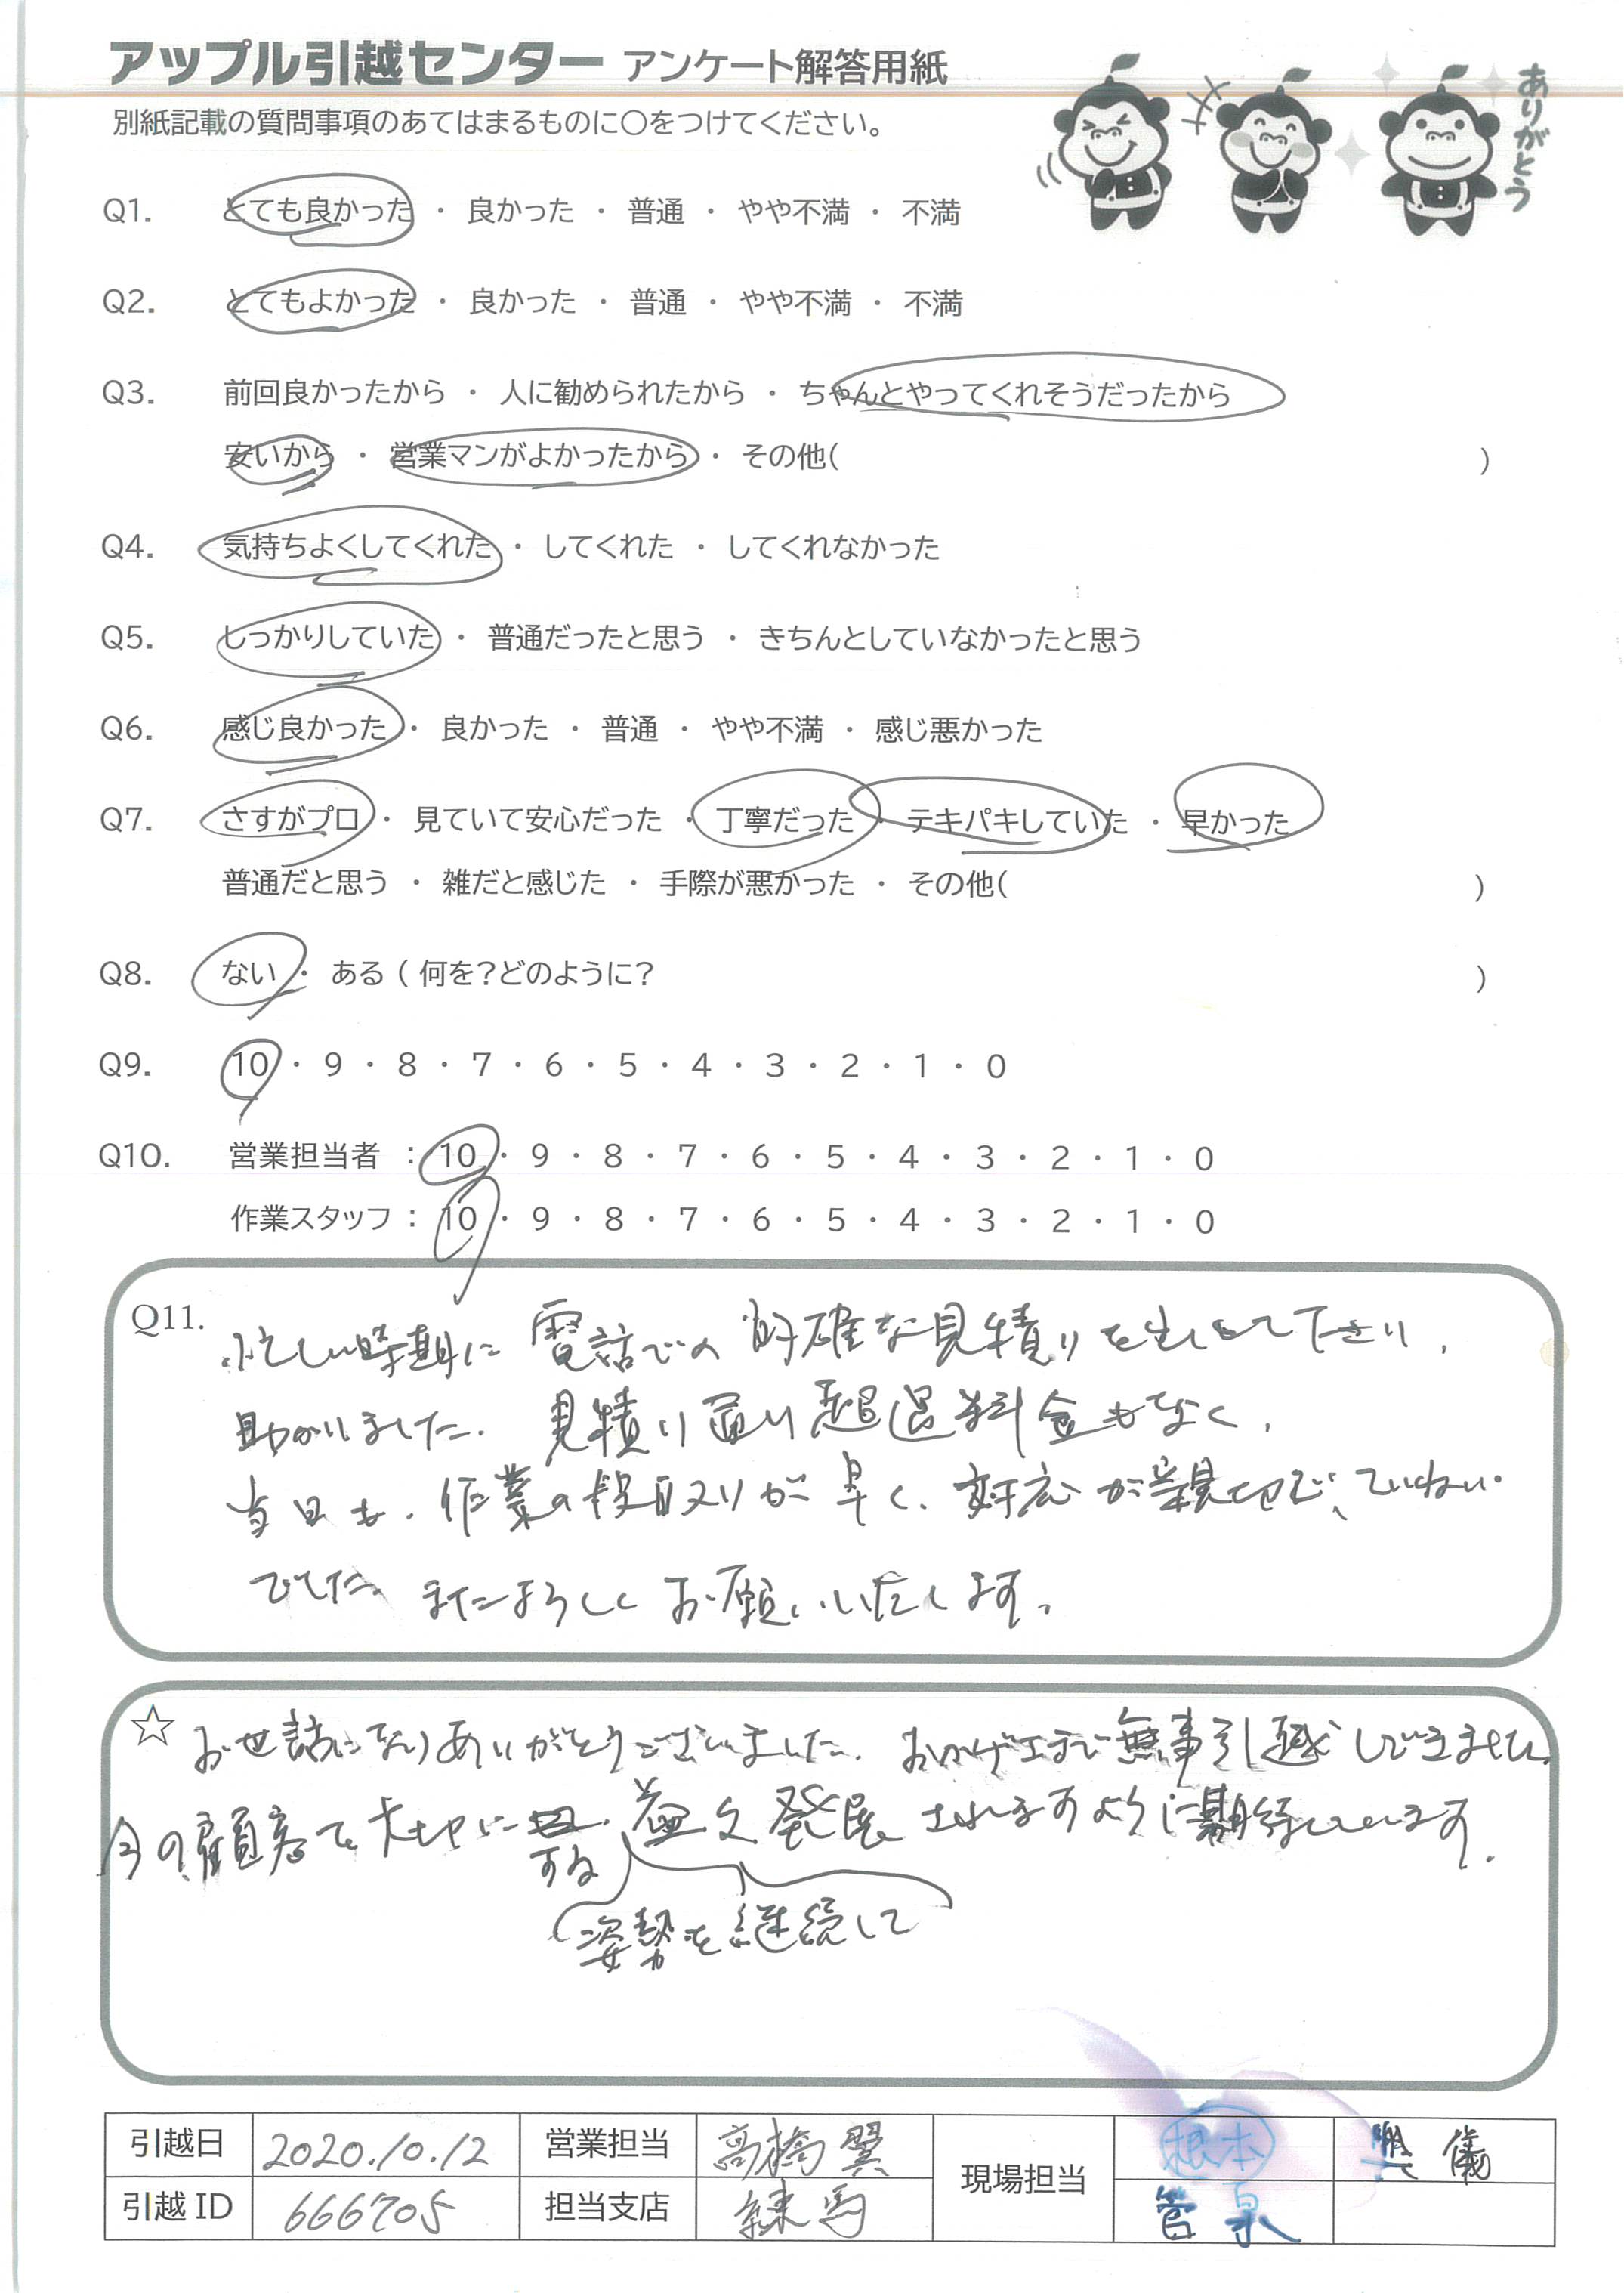 アップル引越センター アンケート解答用紙
別紙記載の質問事項のあてはまるものに○をつけてください。
ありがとう
Q1. とても良かった ・ 良かった ・ 普通 ・ やや不満 ・ 不満
Q2. とてもよかった ・ 良かった ・ 普通 ・ やや不満 ・ 不満
Q3. 前回良かったから ・ 人に勧められたから ・ ちゃんとやってくれそうだったから
安いから ・ 営業マンがよかったから ・ その他( )
Q4. 気持ちよくしてくれた ・ してくれた ・ してくれなかった
Q5. しっかりしていた ・ 普通だったと思う ・ きちんとしていなかったと思う
Q6. 感じ良かった ・ 良かった ・ 普通 ・ やや不満 ・ 感じ悪かった
Q7. さすがプロ ・ 見ていて安心だった ・ 丁寧だった ・ テキパキしていた ・ 早かった
普通だと思う ・ 雑だと感じた ・ 手際が悪かった ・ その他( )
Q8. ない ・ ある ( 何を?どのように? )
Q9. 10 ・ 9 ・ 8 ・ 7 ・ 6 ・ 5 ・ 4 ・ 3 ・ 2 ・ 1 ・ 0
Q10. 営業担当者 : 10 ・ 9 ・ 8 ・ 7 ・ 6 ・ 5 ・ 4 ・ 3 ・ 2 ・ 1 ・ 0
作業スタッフ : 10 ・ 9 ・ 8 ・ 7 ・ 6 ・ 5 ・ 4 ・ 3 ・ 2 ・ 1 ・ 0
Q11. 忙しい時期に電話での的確な見積りを出して下さり、
助かりました。見積り通り超過料金もなく、
当日も、作業の段取りが早く、対応が親切で、ていねい
でした。またよろしくお願いいたします。
☆ お世話になりありがとうございました。おかげさまで無事引越しできました。
今の顧客を大切に 益々発展されますように期待しています。
する
姿勢を継続して
引越日 2020.10.12 営業担当 高橋翼 現場担当 根本 儀
引越ID 666705 担当支店 練馬 菅泉